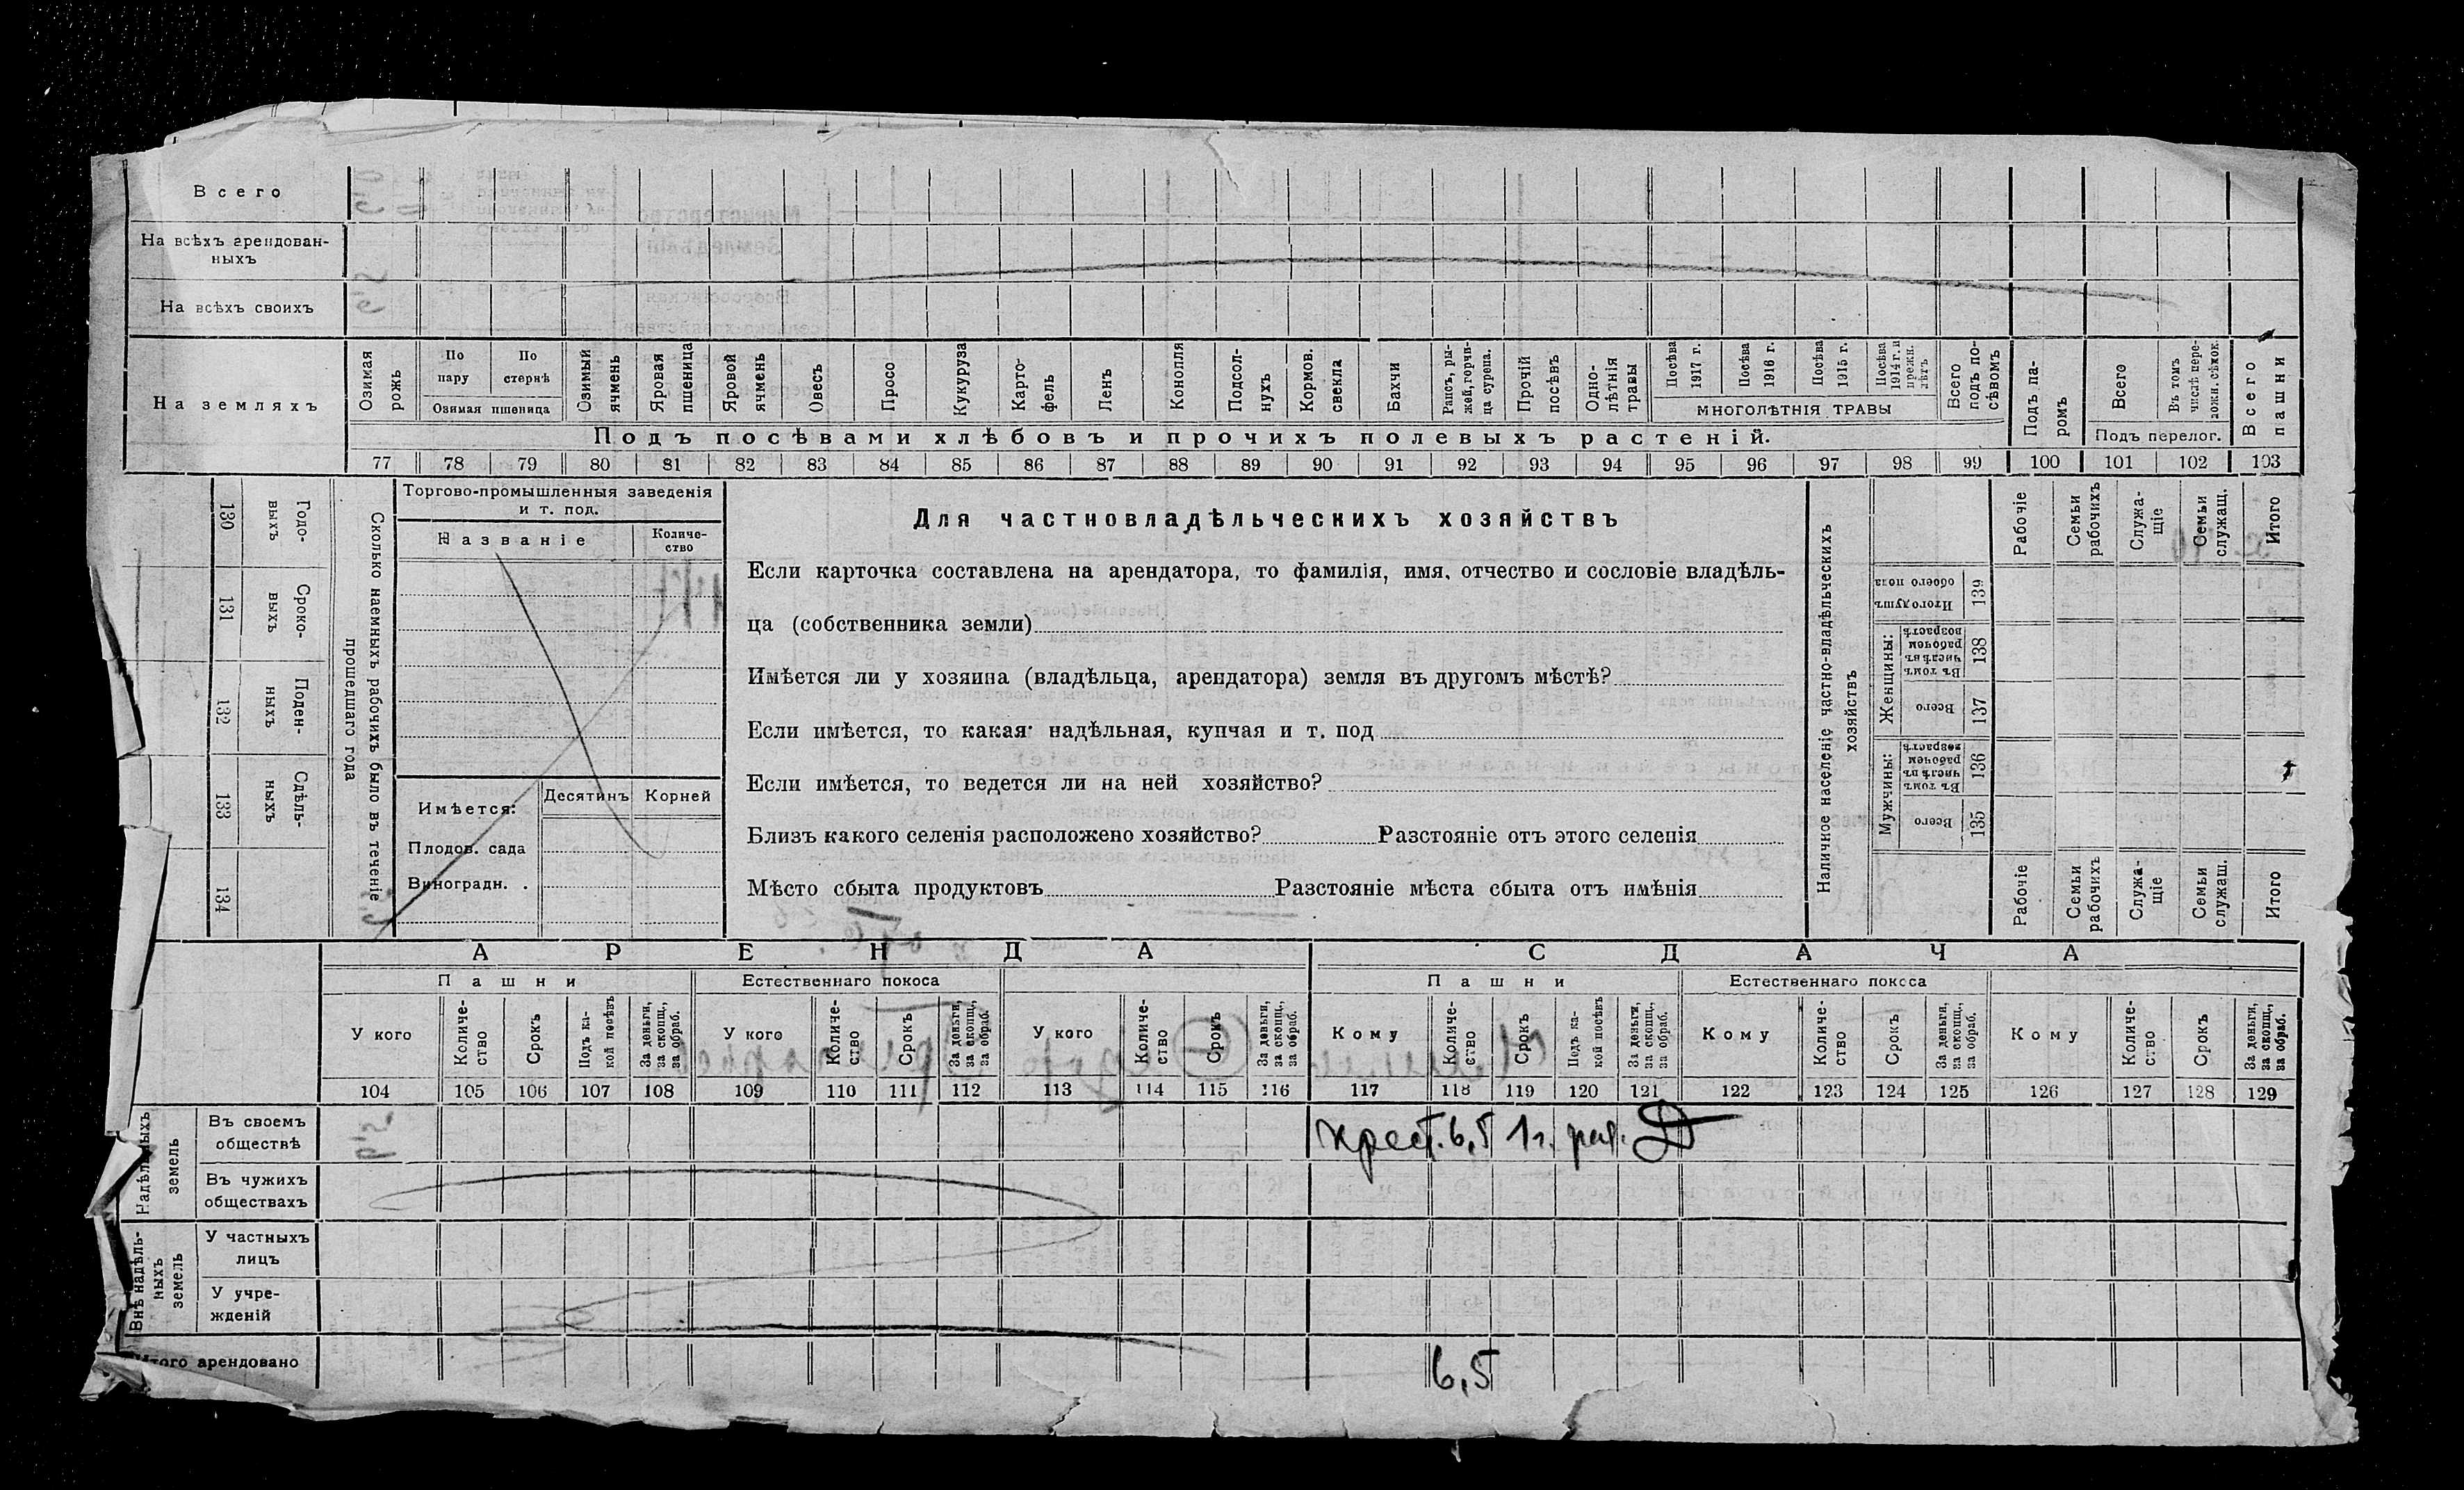 Всего
На всѣхъ арендован-
ныхъ
На всѣхъ своихъ
На земляхъ
Озимая рожь
По пару
По стернѣ
Озимая пшеница
Озимый ячмень
Яровая пшеница
Яровой ячмень
Овесъ
Просо
Кукуруза
Карто-
фель
Ленъ
Конопля
Подсол-
нухъ
Кормов. свекла
Бахчи
Рапсъ, ры-
жей, горчи-
ца сурепа.
Прочій посѣвъ
Одно-
лѣтнія травы
Посѣва 1917 г.
Посѣва 1916 г.
Посѣва 1915 г.
Посѣва 1914 г. и прежн. лѣтъ
МНОГОЛѢТНІЯ ТРАВЫ
Всего подъ по-
сѣвомъ
Подъ па-
ромъ
Всего
Въ томъ числѣ пере-
ложн. сѣнок.
Подъ перелог.
Всего пашни
Подъ посѣвами хлѣбовъ и прочихъ полевыхъ растеній.
77 78 79 80 81 82 83 84 85 86 87 88 89 90 91 92 93 94 95 96 97 98 99 100 101 102 103
130 Годо-
выхъ
131 Сроко-
выхъ
132 Поден-
ныхъ
133 Сдѣль-
ныхъ
134
Сколько наемныхъ рабочихъ было въ теченіе
прошедшаго года
Торгово-промышленныя заведенія
и т. под.
Названіе
Количе-
ство
Имѣется:
Десятинъ
Корней
Плодов. сада
Виноградн. .
Для частновладѣльческихъ хозяйствъ
Если карточка составлена на арендатора, то фамилія, имя, отчество и сословіе владѣль-
ца (собственника земли)
Имѣется ли у хозяина (владѣльца, арендатора) земля въ другомъ мѣстѣ?
Если имѣется, то какая: надѣльная, купчая и т. под
Если имѣется, то ведется ли на ней хозяйство?
Близъ какого селенія расположено хозяйство? Разстояніе отъ этого селенія
Мѣсто сбыта продуктовъ Разстояніе мѣста сбыта отъ имѣнія
Наличное населеніе частно-владѣльческихъ
хозяйствъ
Рабочіе
Семьи рабочихъ
Служа-
щіе
Семьи служащ.
Итого
Итого душъ обоего пола 139
Женщины:
Въ томъ числѣ въ рабочем возрастѣ 138
Всего 137
Мужчины:
Въ томъ числѣ въ рабочем возрастѣ 136
Всего 135
Рабочіе
Семьи рабочихъ
Служа-
щіе
Семьи служащ.
Итого
АРЕНДА
СДАЧА
Пашни
Естественнаго покоса
Пашни
Естественнаго покоса
У кого
Количе-
ство
Срокъ
Подъ ка-
кой посѣвъ
За деньги, за скопщ., за обраб.
У кого
Количе-
ство
Срокъ
За деньги, за скопщ., за обраб.
У кого
Количе-
ство
Срокъ
За деньги, за скопщ., за обраб.
Кому
Количе-
ство
Срокъ
Подъ ка-
кой посѣвъ
За деньги, за скопщ., за обраб.
Кому
Количе-
ство
Срокъ
За деньги, за скопщ., за обраб.
Кому
Количе-
ство
Срокъ
За деньги, за скопщ., за обраб.
104 105 106 107 108 109 110 111 112 113 114 115 116 117 118 119 120 121 122 123 124 125 126 127 128 129
Надѣльныхъ земель
Въ своемъ
обществѣ
крест. 6,5 1 г.
Въ чужихъ
обществахъ
Внѣ надѣль-
ныхъ земель
У частныхъ
лицъ
У учре-
жденій
Итого арендовано
6,5